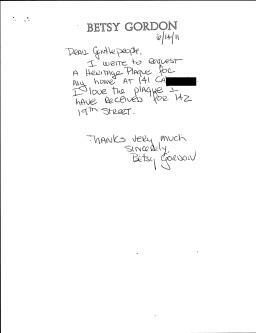 BETSY GORDON
6/14/11
Dear Gentlepeople,
I write to request
a Heritage Plaque for
my home at 141 Ca
I love the plaque I
have received for 142
19th Street.
Thanks very much
Sincerely,
Betsy Gordon